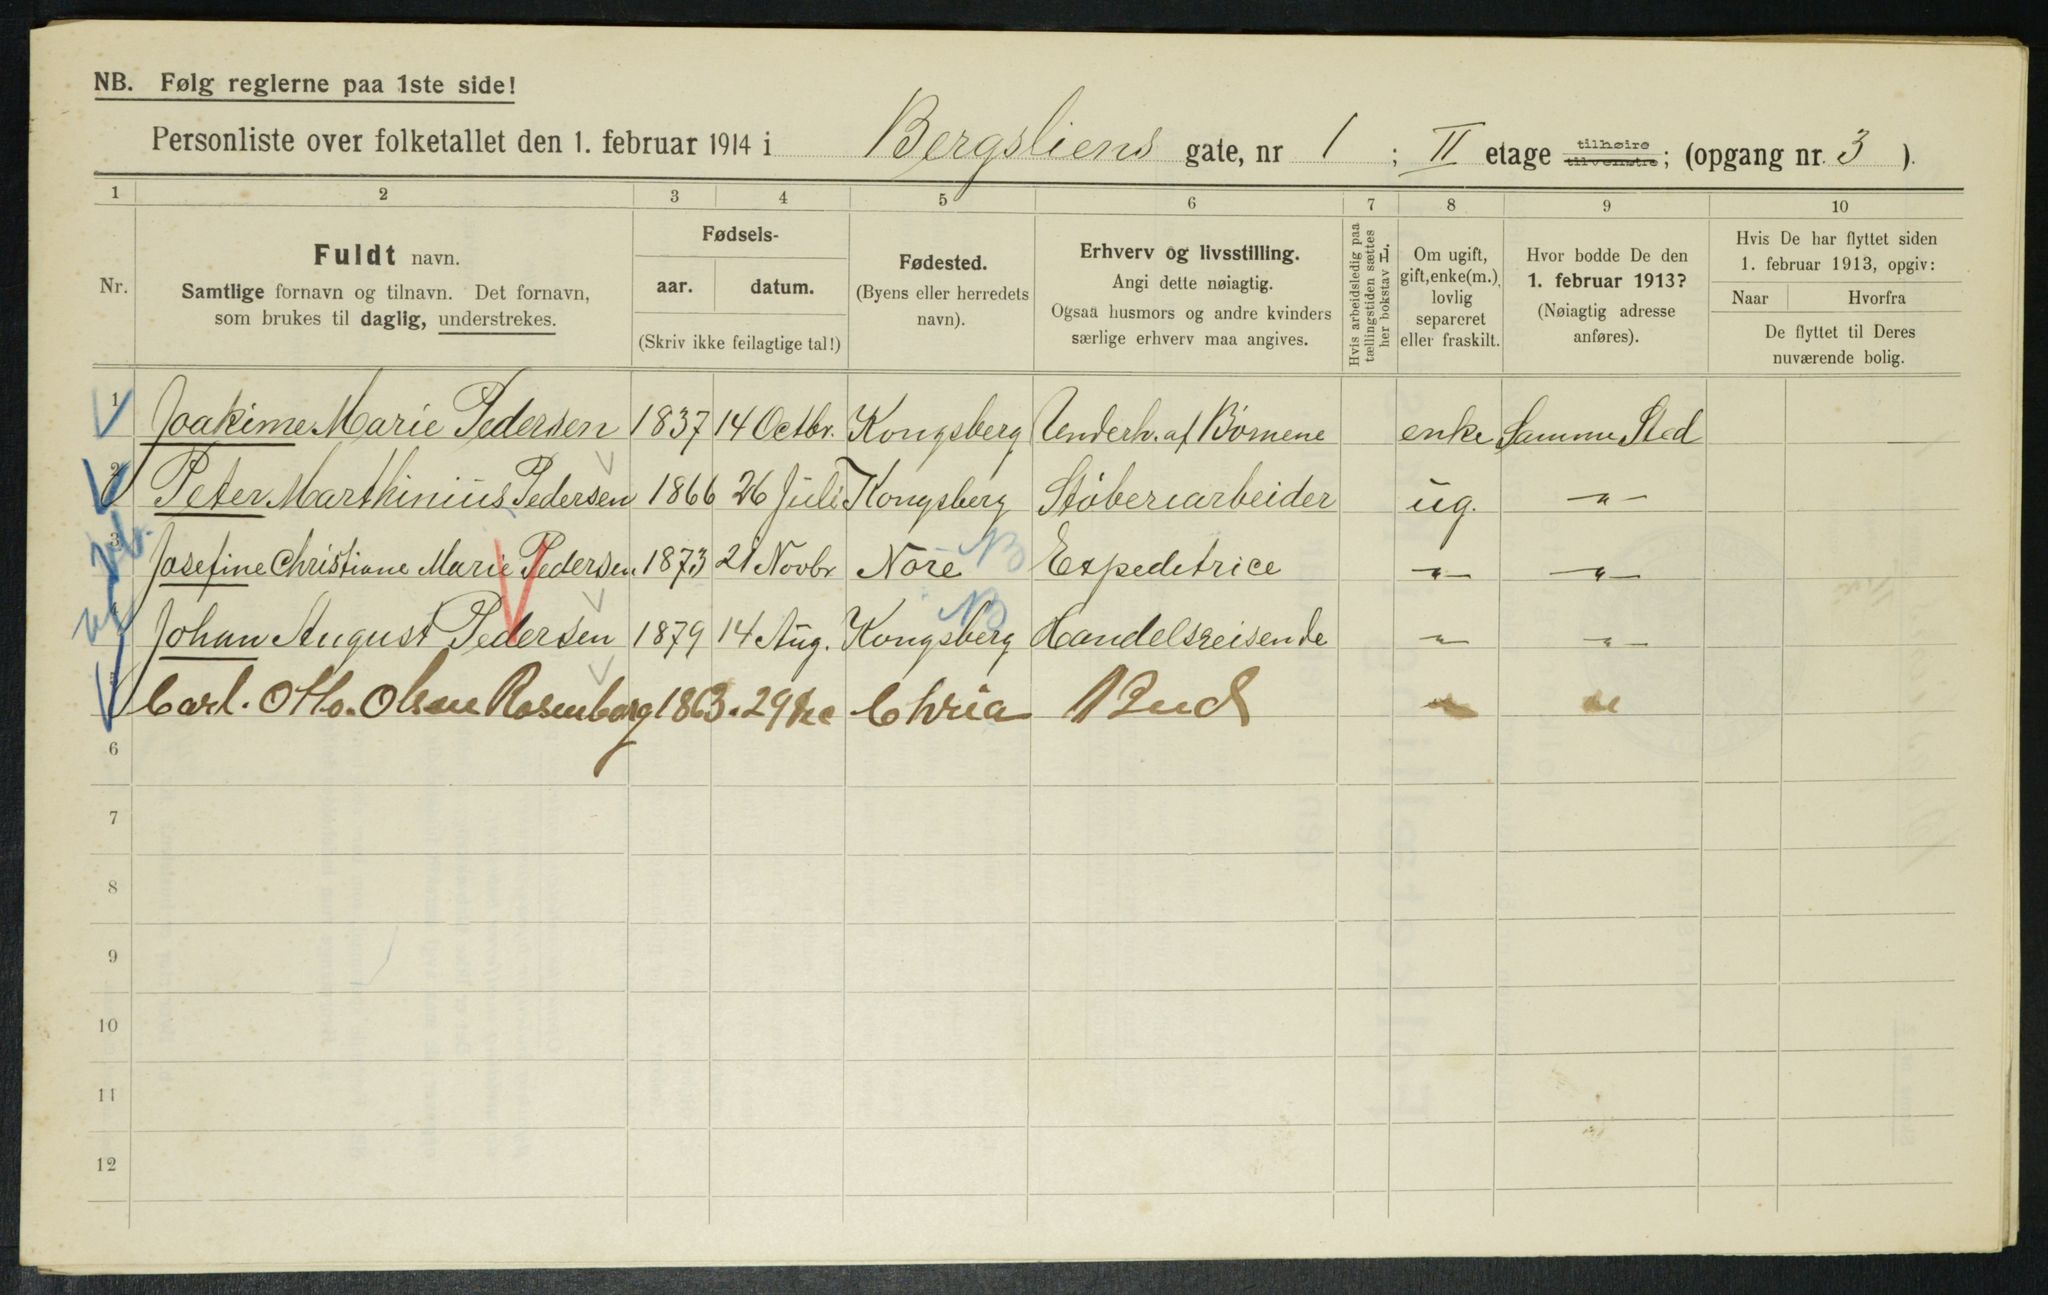 NB. Følg reglerne paa 1ste side!
Personliste over folketallet den 1. februar 1914 i Bergsliens gate, nr 1 ; II etage tilhøire tilvenstre; (opgang nr. 3 ).
1 2 3 4 5 6 7 8 9 10
Nr.
Fuldt navn.
Samtlige fornavn og tilnavn. Det fornavn,
som brukes til daglig, understrekes.
Fødsels-
aar. datum.
(Skriv ikke feilagtige tal!)
Fødested.
(Byens eller herredets
navn).
Erhverv og livsstilling.
Angi dette nøiagtig.
Ogsaa husmors og andre kvinders
særlige erhverv maa angives.
Hvis arbeidsledig paa
tællingstiden sættes
her bokstav H.
Om ugift,
gift, enke(m.),
lovlig
separeret
eller fraskilt.
Hvor bodde De den
1. februar 1913?
(Nøiagtig adresse
anføres).
Hvis De har flyttet siden
1. februar 1913, opgiv:
Naar Hvorfra
De flyttet til Deres
nuværende bolig.
1 Joakime Marie Pedersen 1837 14 Octbr. Kongsberg Underh. af Börnene enke Samme Sted
2 Peter Marthinius Pedersen 1866 26 Juli Kongsberg Stöberiarbeider ug. -"-
3 Josefine Christiane Marie Pedersen 1873 21 Novbr Nore Expeditrice -"- -"-
4 Johan August Pedersen 1879 14 Aug. Kongsberg Handelsreisende -"- -"-
5 Carl. Otto. Olsen Rosenborg 1863. 29 De Chria Bud " "
6
7
8
9
10
11
12